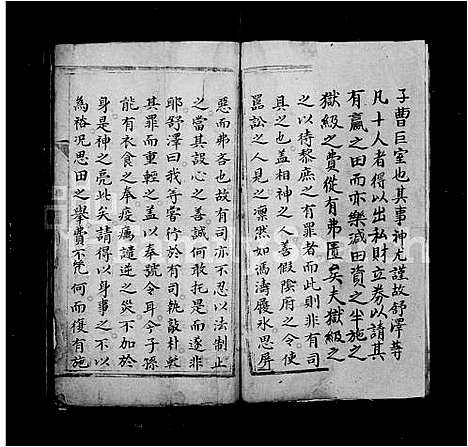 子曹巨室也其事神尤謹故舒澤等
凡十人者得以出私財立券以請其
有贏之田而亦樂減田資之半施之
獄級之費從有弗匱矣夫獄級之
具之也蓋相神之人善假陰府之令使
之以待黎庶之有罪者而此則非有司
嚚訟之人見之凜然如馮濤履氷思屏
惡而弗吝也故有司亦不忍以法制止
之當其誤心之善誠何敢托是而遂非
耶舒澤曰我等嘗行於有司執敲朴乾
其罪而重輕之蓋以奉號令耳今子孫
能有衣食之奉疫癘譴逆之災不加於
身是神之亮此矣請得以身事之不以
為㤥况思田之舉費不凭何而復有施